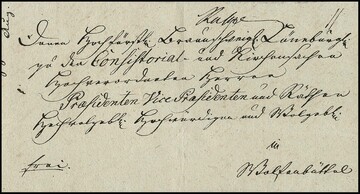 Denen Hochfürstl. Braunschweig. Lüneburg.
zu den Consistorial- und Kirchensachen
Hochverordneten Herren
Præsidenten Vice Præsidenten und Räthen
Hochwürdigen und
in
frei.
Wolfenbüttel